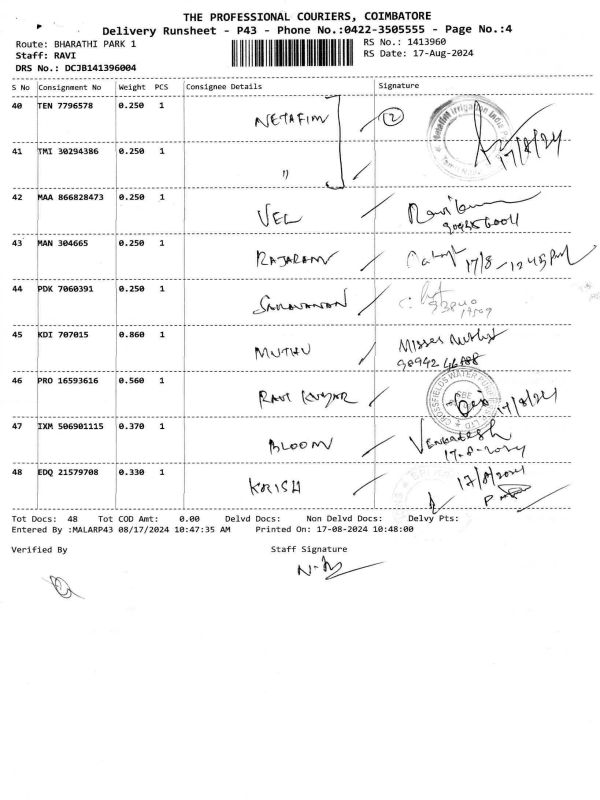 THE PROFESSIONAL COURIERS, COIMBATORE
Delivery Runsheet - P43 - Phone No.:0422-3505555 - Page No.:4
Route: BHARATHI PARK 1 RS No.: 1413960
Staff: RAVI RS Date: 17-Aug-2024
DRS No.: DCJB141396004
S No Consignment No Weight PCS Consignee Details Signature
40 TEN 7796578 0.250 1 NETAFIM 2
17/8/24
41 TMI 30294386 0.250 1 "
42 MAA 866828473 0.250 1 VEL
43 MAN 304665 0.250 1 RAJARAM 17/8 - 12 45 PM
44 PDK 7060391 0.250 1 SARAVANAN
45 KDI 707015 0.860 1 MUTHU
46 PRO 16593616 0.560 1 RAVI KUMAR 17/8/24
CROSSFIELDS WATER
47 IXM 506901115 0.370 1 BLOOM VENGADESH
17-8-2024
48 EDQ 21579708 0.330 1 KRISH 17/8/2024
Tot Docs: 48 Tot COD Amt: 0.00 Delvd Docs: Non Delvd Docs: Delvy Pts:
Entered By :MALARP43 08/17/2024 10:47:35 AM Printed On: 17-08-2024 10:48:00
Verified By Staff Signature